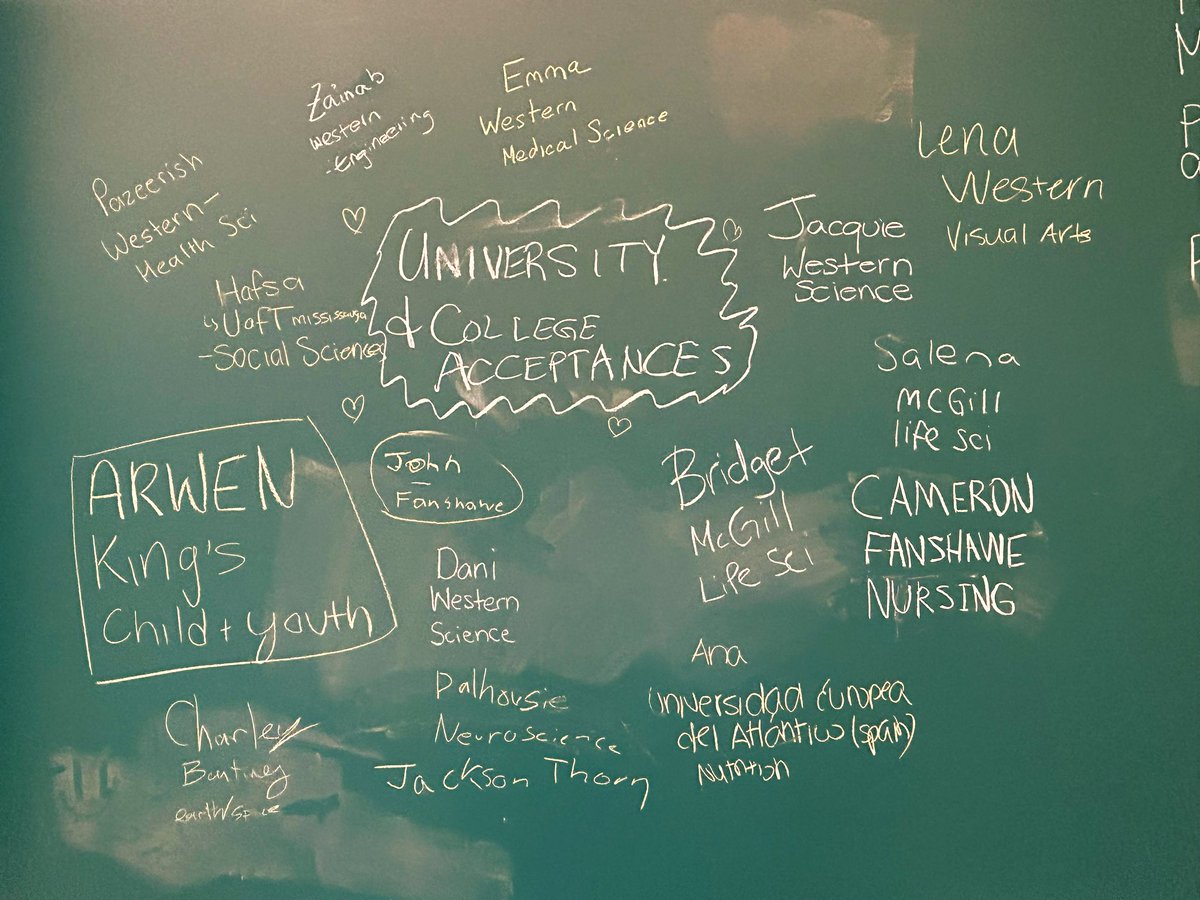 Zainab
Western
-Engineering
Emma
Western
Medical Science
Pazeerish
Western-
Health Sci
Lena
Western
Visual Arts
Jacquie
Western
Science
Hafsa
↳ UofT mississauga
-Social Science
UNIVERSITY
& COLLEGE
ACCEPTANCES
Salena
MCGill
life sci
ARWEN
King's
Child + youth
John
–
Fanshawe
Bridget
McGill
Life Sci
CAMERON
FANSHAWE
NURSING
Dani
Western
Science
Dalhousie
Neuroscience
Jackson Thorn
Ana
Universidad Europea
del Atlántico (spain)
Nutrition
Charley